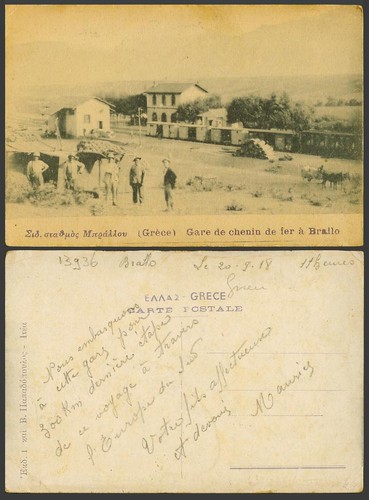 Σιδ. σταθμὸς Μπράλλου (Grèce) Gare de chenin de fer à Brallo
13936 Brallo Le 20-9-18 11 heures
ΕΛΛΑΣ - GRECE
CARTE POSTALE
Nous embarquons
à cette gare pour
300 km dernière étape
de ce voyage à travers
l'Europe du Sud
Votre fils affectueux
et dévoué
Maurice
Ἐκδ. Β. Παπαδόπουλος - Ἰτέα